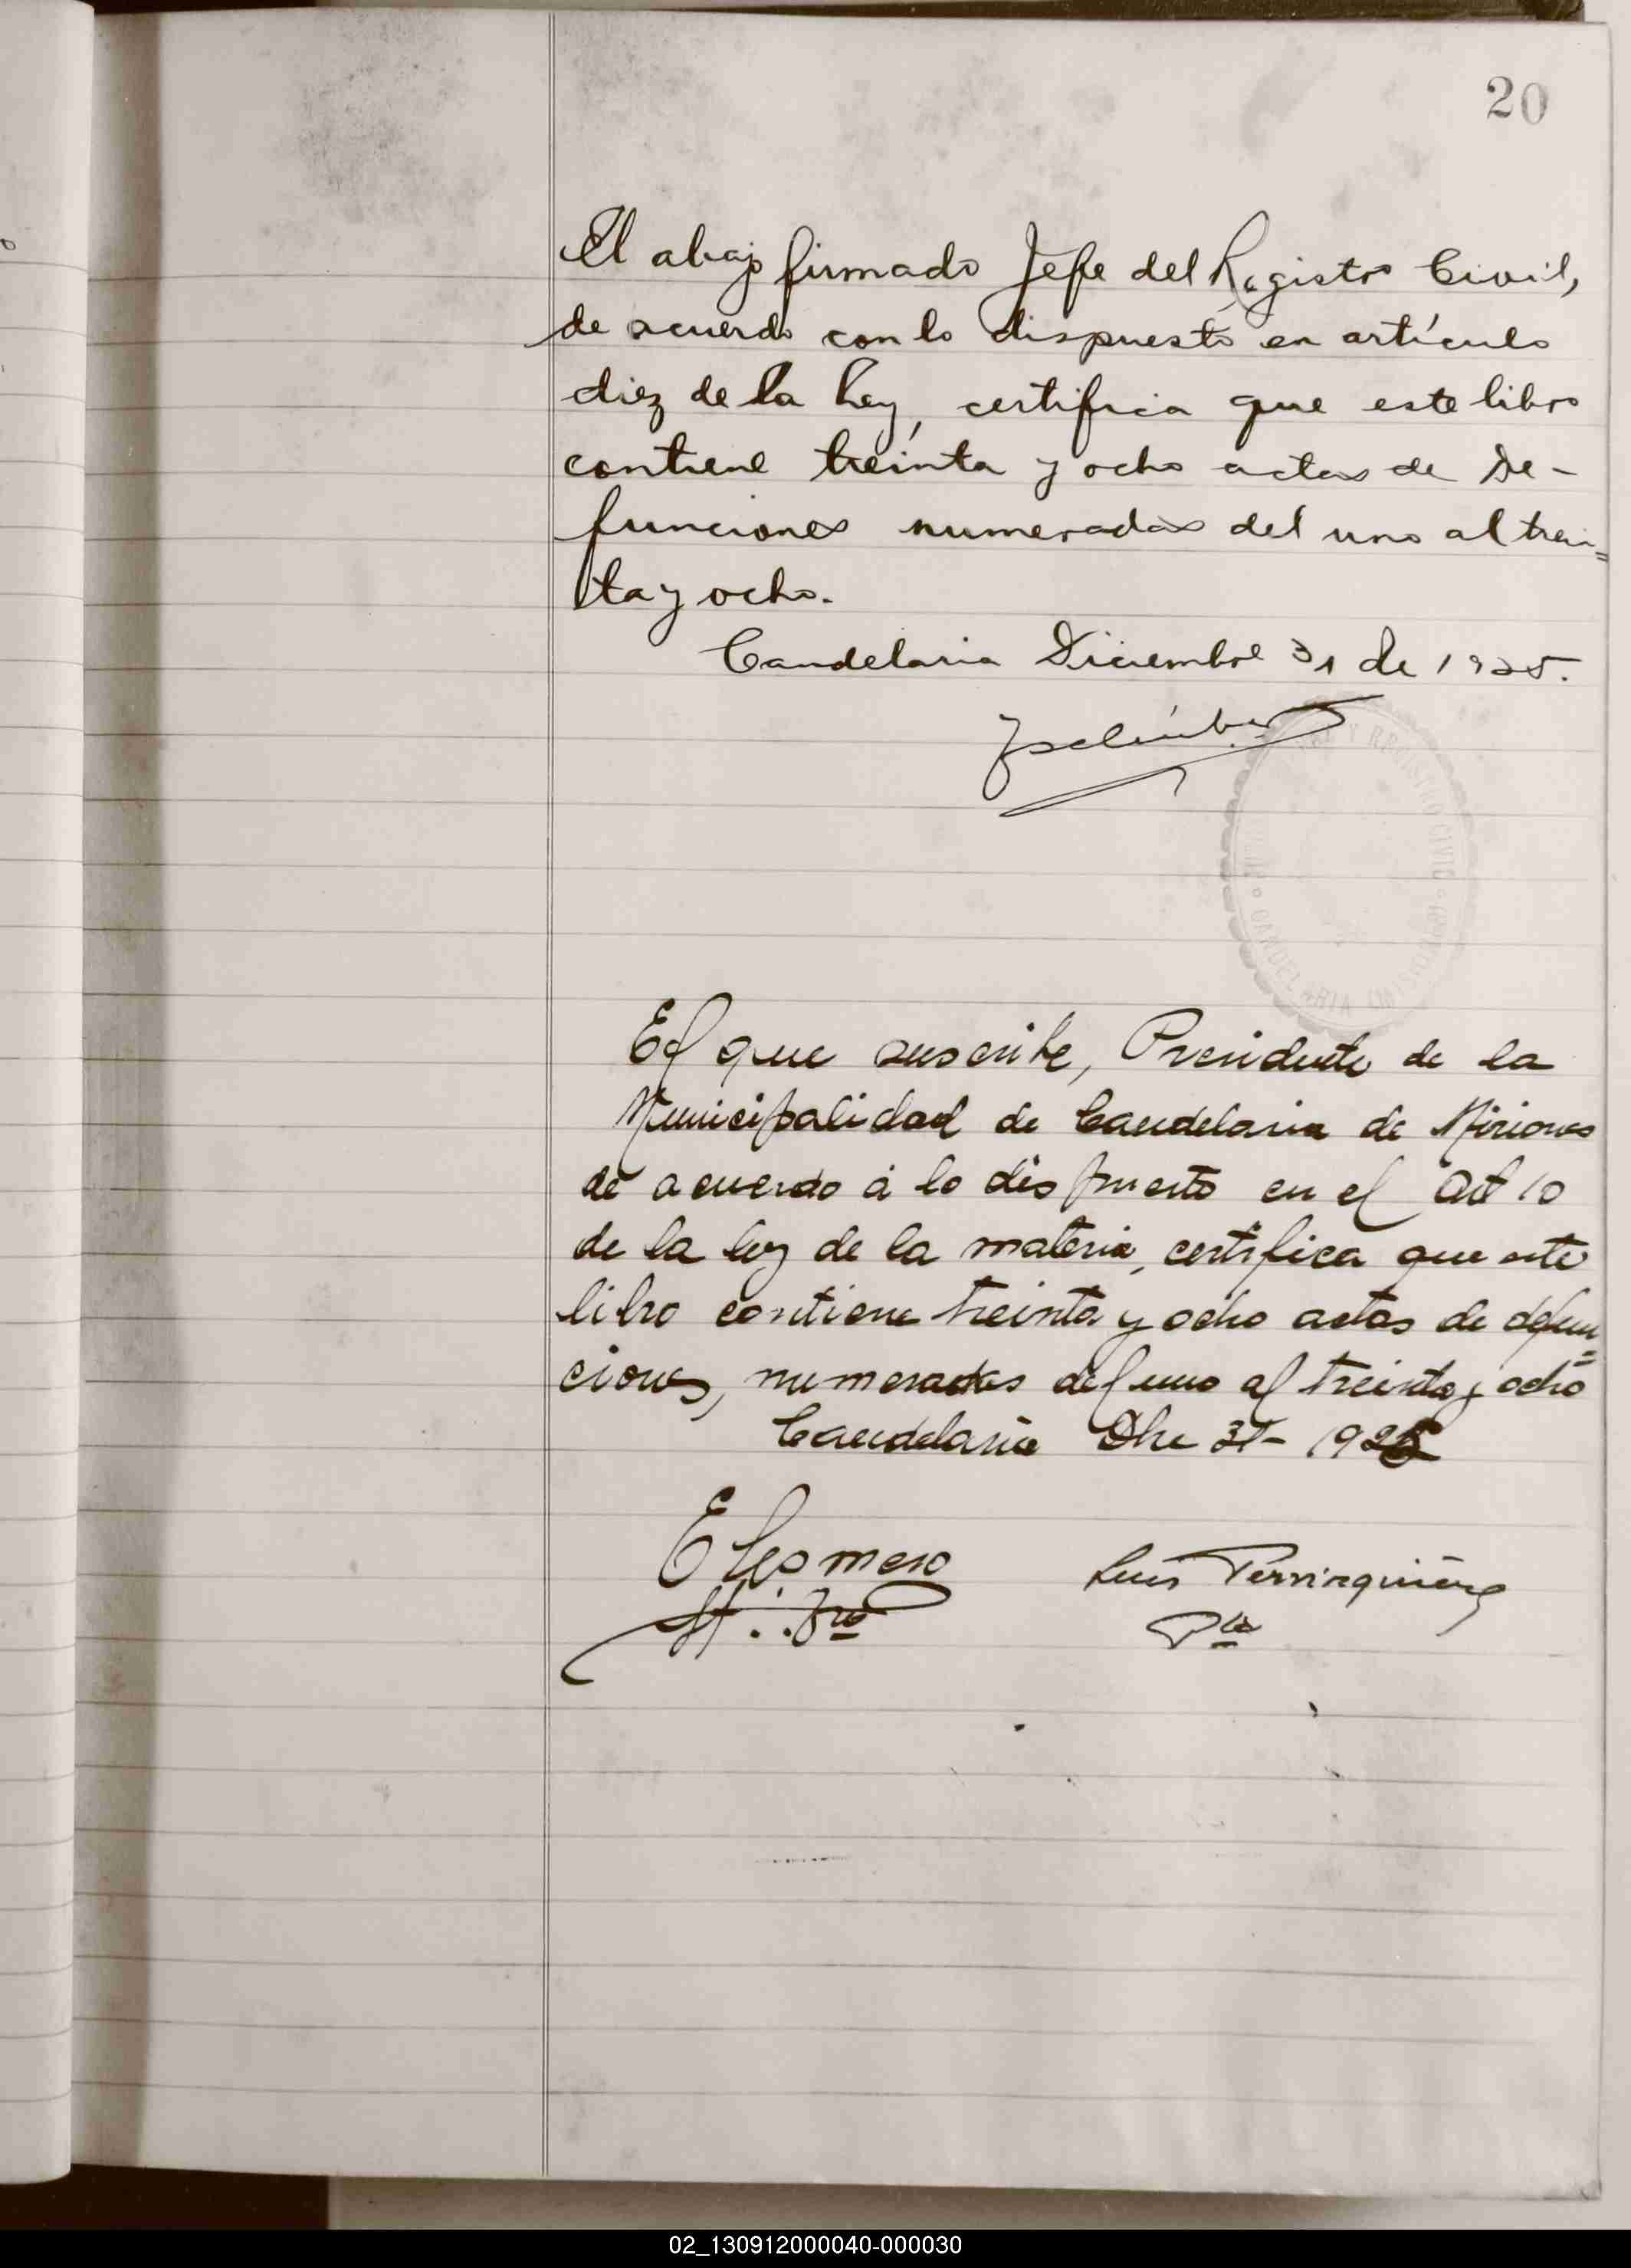 20
El abajo firmado Jefe del Registro Civil,
de acuerdo con lo dispuesto en artículo
diez de la Ley, certifica que este libro
contiene treinta y ocho actas de De-
funciones numeradas del uno al trein=
ta y ocho.
Candelaria Diciembre 31 de 1925.
Y REGISTRO CIVIL
CANDELARIA (MISIONES)
El que suscribe, Presidente de la
Municipalidad de Candelaria de Misiones
de acuerdo á lo dispuesto en el Art 10
de la ley de la materia, certifica que este
libro contiene treinta y ocho actas de defun=
ciones, numeradas del uno al treinta y ocho
Candelaria Dbre 31- 1925
E Romero Luis
St.. Pte
02_130912000040-000030